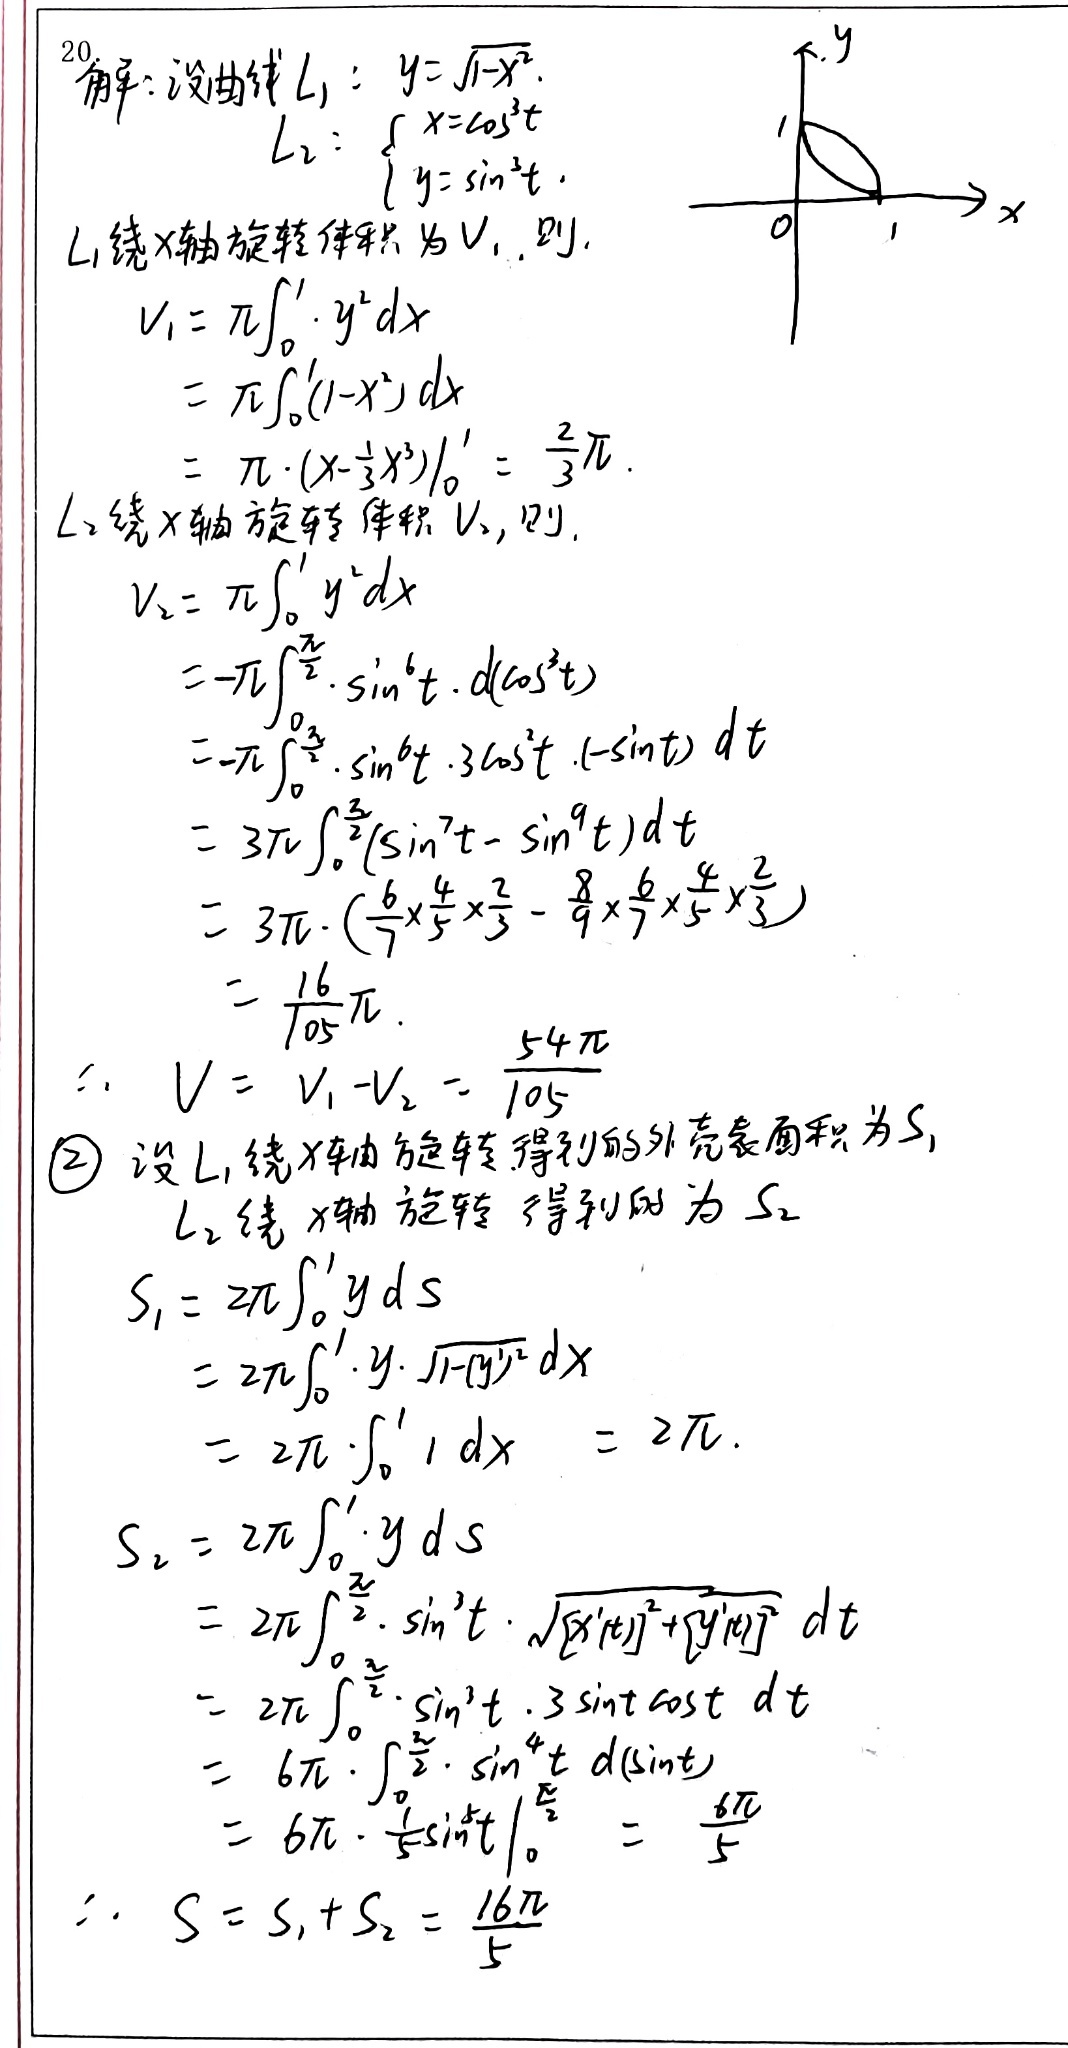 20
解：设曲线 L₁： y=√(1-x²).
L₂： { x=cos³t
y=sin³t.
y
1
0
1
x
L₁绕x轴旋转体积为V₁,则.
V₁ = π∫₀¹·y²dx
= π∫₀¹(1-x²)dx
= π·(x-⅓x³)|₀¹ = 2/3 π.
L₂绕x轴旋转体积V₂,则.
V₂ = π∫₀¹ y²dx
= -π∫₀^(π/2)·sin⁶t·d(cos³t)
= -π∫₀^(π/2)·sin⁶t·3cos²t·(-sint) dt
= 3π∫₀^(π/2)(sin⁷t - sin⁹t)dt
= 3π·(6/7×4/5×2/3 - 8/9×6/7×4/5×2/3)
= 16/105 π.
∴ V = V₁-V₂ = 54π/105
② 设L₁绕x轴旋转得到的外壳表面积为S₁
L₂绕x轴旋转得到的为S₂
S₁ = 2π∫₀¹ y ds
= 2π∫₀¹·y·√(1-(y')²) dx
= 2π·∫₀¹ 1 dx = 2π.
S₂ = 2π∫₀¹·y ds
= 2π∫₀^(π/2)·sin³t·√([x'(t)]²+[y'(t)]²) dt
= 2π∫₀^(π/2)·sin³t·3sint cost dt
= 6π·∫₀^(π/2)·sin⁴t d(sint)
= 6π·1/5 sin⁵t|₀^(π/2) = 6π/5
∴ S = S₁+S₂ = 16π/5